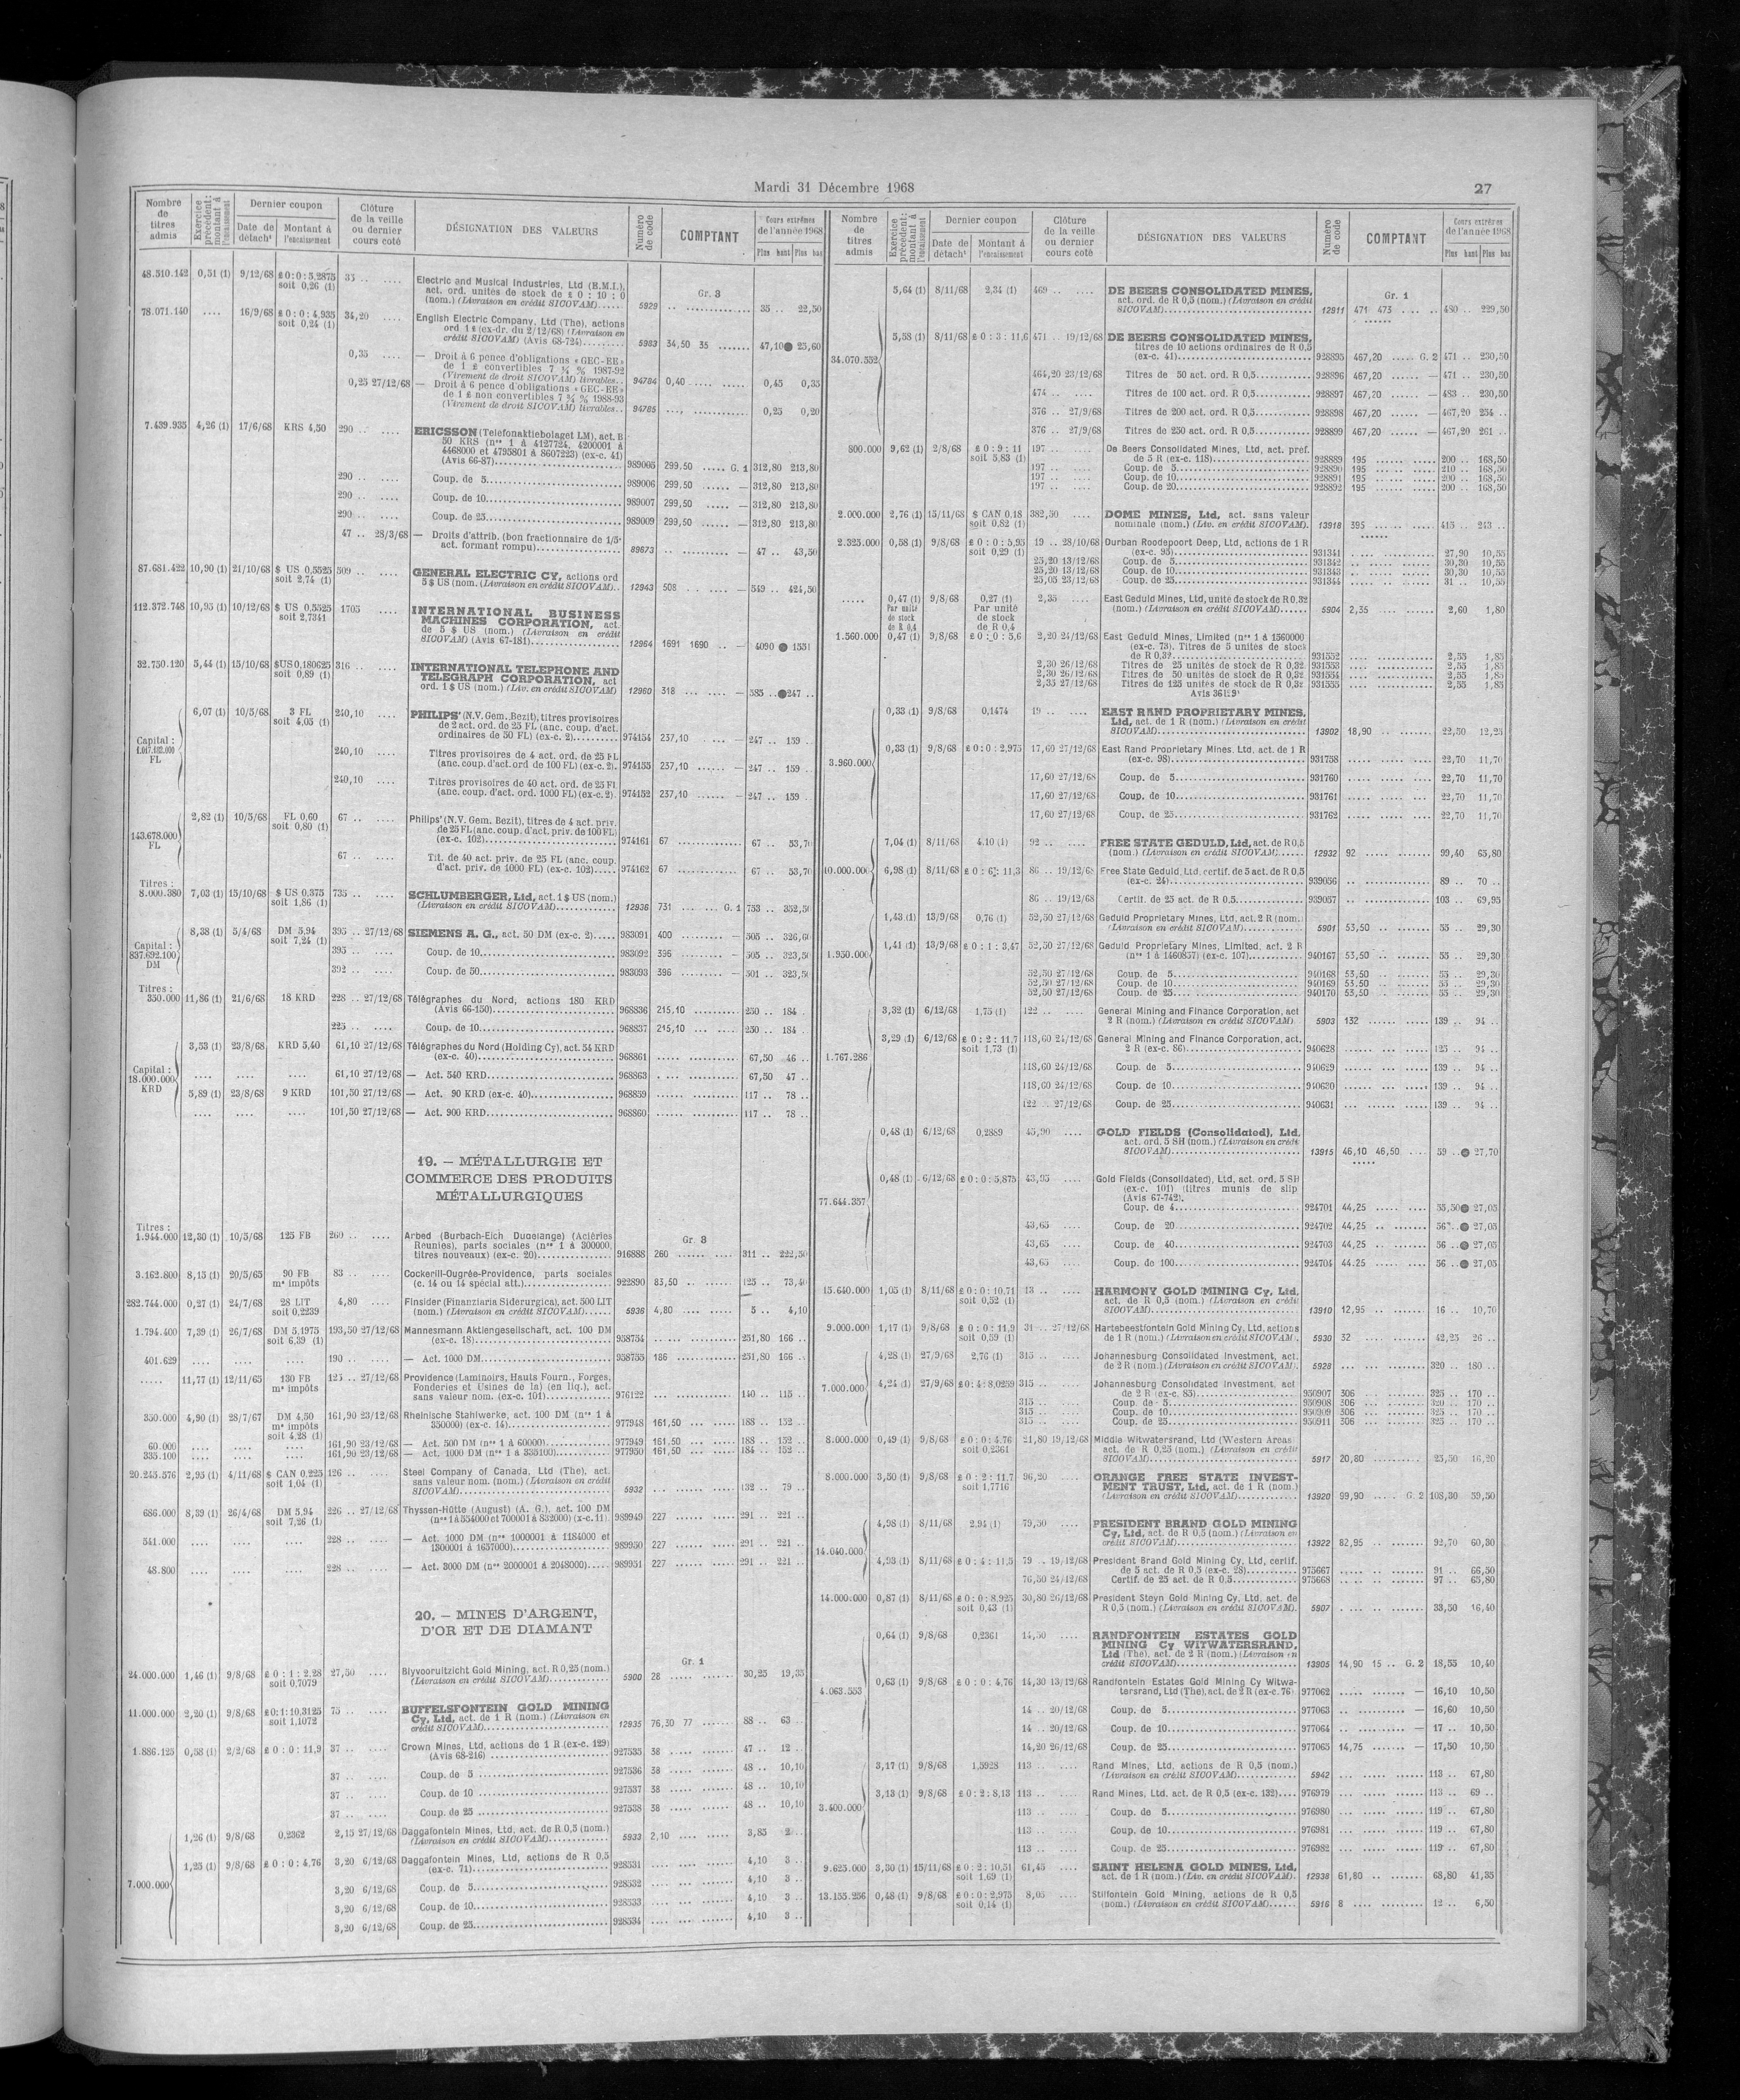 Mardi 31 Décembre 1968
27
Nombre de titres admis
Exercice précédent: montant à l'encaissement
Dernier coupon
Date de détacht
Montant à l'encaissement
Clôture de la veille ou dernier cours coté
DÉSIGNATION DES VALEURS
Numéro de code
COMPTANT
Cours extrêmes de l'année 1968
Plus haut Plus bas
48.510.142 0,51 (1) 9/12/68 £0:0:5,2875 35 .. .... Electric and Musical Industries, Ltd (E.M.I.),
soit 0,26 (1) act. ord. unités de stock de £ 0 : 10 : 0
Gr. 3
(nom.) (Livraison en crédit SICOVAM)..... 5929 35 .. 22,50
78.071.140 .... 16/9/68 £0:0:4,935 34,20 .... English Electric Company, Ltd (The), actions
soit 0,24 (1) ord 1 £ (ex-dr. du 2/12/68) (Livraison en
crédit SICOVAM) (Avis 68-724)......... 5983 34,50 35 ....... 47,10 25,60
0,35 .... — Droit à 6 pence d'obligations « GEC-EE »
de 1 £ convertibles 7 ¾ % 1987-92
(Virement de droit SICOVAM) livrables.. 94784 0,40 .... ..... 0,45 0,35
0,25 27/12/68 — Droit à 6 pence d'obligations « GEC-EE »
de 1 £ non convertibles 7 ¾ % 1988-93
(Virement de droit SICOVAM) livrables.. 94785 0,25 0,20
7.439.935 4,26 (1) 17/6/68 KRS 4,50 290 .. .... ERICSSON (Telefonaktiebolaget LM), act. B
50 KRS (nos 1 à 4127724, 4200001 à
4468000 et 4795801 à 8607223) (ex-c. 41)
(Avis 66-87)........ 989005 299,50 ..... G. 1 312,80 213,80
290 .. .... Coup. de 5........ 989006 299,50 ...... — 312,80 213,80
290 .. .... Coup. de 10........ 989007 299,50 ...... — 312,80 213,80
290 .. .... Coup. de 25........ 989009 299,50 ...... — 312,80 213,80
47 .. 28/3/68 — Droits d'attrib. (bon fractionnaire de 1/5e
act. formant rompu)........ 89673 .. ......... — 47 .. 43,50
87.681.422 10,90 (1) 21/10/68 $ US 0,5525 509 .. .... GENERAL ELECTRIC CY, actions ord
soit 2,74 (1) 5 $ US (nom. (Livraison en crédit SICOVAM).. 12943 508 .. .. .... — 549 .. 424,50
112.372.748 10,95 (1) 10/12/68 $ US 0,5525 1705 .... INTERNATIONAL BUSINESS
soit 2,7341 MACHINES CORPORATION, act.
de 5 $ US (nom.) (Livraison en crédit
SICOVAM) (Avis 67-181)........ 12964 1691 1690 .. — 4090 1551
32.750.120 5,44 (1) 15/10/68 $US0,180625 316 .. .... INTERNATIONAL TELEPHONE AND
soit 0,89 (1) TELEGRAPH CORPORATION, act
ord. 1 $ US (nom.) (Liv. en crédit SICOVAM) 12960 318 ... ... .... — 585 .. 247 ..
Capital : 1.047.482.000 FL
6,07 (1) 10/5/68 3 FL 240,10 .... PHILIPS' (N.V. Gem. Bezit), titres provisoires
soit 4,05 (1) de 2 act. ord. de 25 FL (anc. coup. d'act.
ordinaires de 50 FL) (ex-c. 2)........ 974154 237,10 ...... — 247 .. 159 ..
240,10 .... Titres provisoires de 4 act. ord. de 25 FL
(anc. coup. d'act. ord de 100 FL) (ex-c. 2). 974155 237,10 ...... — 247 .. 159 ..
240,10 .... Titres provisoires de 40 act. ord. de 25 Fl
(anc. coup. d'act. ord. 1000 FL) (ex-c. 2). 974152 237,10 ...... — 247 .. 159 ..
143.678.000 FL
2,82 (1) 10/5/68 FL 0,60 67 .. .... Philips' (N.V. Gem. Bezit), titres de 4 act. priv.
soit 0,80 (1) de 25 FL (anc. coup. d'act. priv. de 100 FL)
(ex-c. 102)........ 974161 67 ............ 67 .. 53,70
67 .. .... Tit. de 40 act. priv. de 25 FL (anc. coup.
d'act. priv. de 1000 FL) (ex-c. 102)..... 974162 67 ............ 67 .. 53,70
Titres :
8.000.380 7,03 (1) 15/10/68 $ US 0,375 735 .. .... SCHLUMBERGER, Ltd, act. 1 $ US (nom.)
soit 1,86 (1) (Livraison en crédit SICOVAM)........ 12936 731 ... ... G. 1 753 .. 352,50
Capital : 837.692.100 DM
8,38 (1) 5/4/68 DM 5,94 395 .. 27/12/68 SIEMENS A. G., act. 50 DM (ex-c. 2)..... 983091 400 ......... — 505 .. 326,60
soit 7,24 (1)
395 .. .... Coup. de 10........ 983092 396 ......... — 505 .. 323,50
392 .. .... Coup. de 50........ 983093 396 ......... — 501 .. 323,50
Titres :
350.000 11,86 (1) 21/6/68 18 KRD 228 .. 27/12/68 Télégraphes du Nord, actions 180 KRD
(Avis 66-150)........ 968836 215,10 ......... 250 .. 184 ..
225 .. .... Coup. de 10........ 968837 215,10 ......... 250 .. 184 ..
Capital : 18.000.000 KRD
3,53 (1) 23/8/68 KRD 5,40 61,10 27/12/68 Télégraphes du Nord (Holding Cy), act. 54 KRD
(ex-c. 40)........ 968861 67,50 46 ..
.... .... .... 61,10 27/12/68 — Act. 540 KRD........ 968863 67,50 47 ..
5,89 (1) 23/8/68 9 KRD 101,50 27/12/68 — Act. 90 KRD (ex-c. 40)........ 968859 117 .. 78 ..
.... .... 101,50 27/12/68 — Act. 900 KRD........ 968860 117 .. 78 ..
19. — MÉTALLURGIE ET
COMMERCE DES PRODUITS
MÉTALLURGIQUES
Titres :
1.944.000 12,30 (1) 10/5/68 125 FB 260 .. .... Arbed (Burbach-Eich Dudelange) (Aciéries
Gr. 3
Réunies), parts sociales (nos 1 à 300000,
titres nouveaux) (ex-c. 20)........ 916888 260 311 .. 222,50
3.162.800 8,15 (1) 20/5/65 90 FB 83 .. .... Cockerill-Ougrée-Providence, parts sociales
ms impôts (c. 14 ou 14 spécial att.)........ 922890 83,50 125 .. 73,40
282.744.000 0,27 (1) 24/7/68 28 LIT 4,80 .... Finsider (Finanziaria Siderurgica), act. 500 LIT
soit 0,2239 (nom.) (Livraison en crédit SICOVAM)...... 5936 4,80 5 .. 4,10
1.794.400 7,39 (1) 26/7/68 DM 5,1975 193,50 27/12/68 Mannesmann Aktiengesellschaft, act. 100 DM
soit 6,39 (1) (ex-c. 18)........ 958754 251,80 166 ..
401.629 .... .... .... 190 .. .... — Act. 1000 DM........ 958755 186 251,80 166 ..
..... 11,77 (1) 12/11/65 130 FB 125 .. 27/12/68 Providence (Laminoirs, Hauts Fourn., Forges,
ms impôts Fonderies et Usines de la) (en liq.), act.
sans valeur nom. (ex-c. 101)........ 976122 140 .. 115 ..
350.000 4,90 (1) 28/7/67 DM 4,50 161,90 23/12/68 Rheinische Stahlwerke, act. 100 DM (nos 1 à
ms impôts 350000) (ex-c. 14)........ 977948 161,50 188 .. 152 ..
soit 4,28 (1)
60.000 .... .... .... 161,90 23/12/68 — Act. 500 DM (nos 1 à 60000)........ 977949 161,50 188 .. 152 ..
335.100 .... .... .... 161,90 23/12/68 — Act. 1000 DM (nos 1 à 335100)........ 977950 161,50 184 .. 152 ..
20.245.576 2,95 (1) 4/11/68 $ CAN 0,225 126 .. .... Steel Company of Canada, Ltd (The), act.
soit 1,04 (1) sans valeur nom. (nom.) (Livraison en crédit
SICOVAM)........ 5932 132 .. 79 ..
686.000 8,39 (1) 26/4/68 DM 5,94 226 .. 27/12/68 Thyssen-Hütte (August) (A. G.), act. 100 DM
soit 7,26 (1) (nos 1 à 554000 et 700001 à 832000) (x-c. 11). 989949 227 291 .. 221 ..
541.000 .... .... .... 228 .. .... — Act. 1000 DM (nos 1000001 à 1184000 et
1300001 à 1657000)........ 989950 227 291 .. 221 ..
48.800 .... .... .... 228 .. .... — Act. 3000 DM (nos 2000001 à 2048000)..... 989951 227 291 .. 221 ..
20. — MINES D'ARGENT,
D'OR ET DE DIAMANT
Gr. 1
24.000.000 1,46 (1) 9/8/68 £0:1:2,28 27,50 .... Blyvooruitzicht Gold Mining, act. R 0,25 (nom.)
soit 0,7079 (Livraison en crédit SICOVAM)........ 5900 28 30,25 19,35
11.000.000 2,20 (1) 9/8/68 £0:1:10,3125 75 .. .... BUFFELSFONTEIN GOLD MINING
soit 1,1072 Cy, Ltd, act. de 1 R (nom.) (Livraison en
crédit SICOVAM)........ 12935 76,30 77 ....... 88 .. 63 ..
1.886.125 0,58 (1) 2/2/68 £0:0:11,9 37 .. .... Crown Mines, Ltd, actions de 1 R (ex-c. 129)
(Avis 68-216) ........ 927535 38 47 .. 12 ..
37 .. .... Coup. de 5 ........ 927536 38 48 .. 10,10
37 .. .... Coup. de 10 ........ 927537 38 48 .. 10,10
37 .. .... Coup. de 25 ........ 927538 38 48 .. 10,10
7.000.000
1,26 (1) 9/8/68 0,2362 2,15 27/12/68 Daggafontein Mines, Ltd, act. de R 0,5 (nom.)
(Livraison en crédit SICOVAM)........ 5933 2,10 3,85 2 ..
1,25 (1) 9/8/68 £0:0:4,76 3,20 6/12/68 Daggafontein Mines, Ltd, actions de R 0,5
(ex-c. 71)........ 928531 4,10 3 ..
3,20 6/12/68 Coup. de 5........ 928532 4,10 3 ..
3,20 6/12/68 Coup. de 10........ 928533 4,10 3 ..
3,20 6/12/68 Coup. de 25........ 928534 4,10 3 ..
Nombre de titres admis
Exercice précédent: montant à l'encaissement
Dernier coupon
Date de détacht
Montant à l'encaissement
Clôture de la veille ou dernier cours coté
DÉSIGNATION DES VALEURS
Numéro de code
COMPTANT
Cours extrêmes de l'année 1968
Plus haut Plus bas
34.070.552
5,64 (1) 8/11/68 2,34 (1) 469 .. .... DE BEERS CONSOLIDATED MINES,
Gr. 1
act. ord. de R 0,5 (nom.) (Livraison en crédit
SICOVAM)........ 12911 471 473 .... .. 480 .. 229,50
5,58 (1) 8/11/68 £0:3:11,6 471 .. 19/12/68 DE BEERS CONSOLIDATED MINES,
titres de 10 actions ordinaires de R 0,5
(ex-c. 41)........ 928895 467,20 ..... G. 2 471 .. 230,50
464,20 23/12/68 Titres de 50 act. ord. R 0,5........ 928896 467,20 ...... — 471 .. 230,50
474 .. .... Titres de 100 act. ord. R 0,5........ 928897 467,20 ...... — 483 .. 230,50
376 .. 27/9/68 Titres de 200 act. ord. R 0,5........ 928898 467,20 ...... — 467,20 254 ..
376 .. 27/9/68 Titres de 250 act. ord. R 0,5........ 928899 467,20 ...... — 467,20 261 ..
800.000 9,62 (1) 2/8/68 £0:9:11 197 .. .... De Beers Consolidated Mines, Ltd, act. pref.
soit 5,83 (1) de 5 R (ex-c. 118)........ 928889 195 200 .. 168,50
197 .. .... Coup. de 5........ 928890 195 210 .. 168,50
197 .. .... Coup. de 10........ 928891 195 200 .. 168,50
197 .. .... Coup. de 20........ 928892 195 200 .. 168,50
2.000.000 2,76 (1) 15/11/68 $ CAN 0,18 382,50 .... DOME MINES, Ltd, act. sans valeur
soit 0,82 (1) nominale (nom.) (Liv. en crédit SICOVAM). 13918 395 415 .. 243 ..
2.325.000 0,58 (1) 9/8/68 £0:0:5,95 19 .. 28/10/68 Durban Roodepoort Deep, Ltd, actions de 1 R
soit 0,29 (1) (ex-c. 95)........ 931341 27,90 10,55
25,20 13/12/68 Coup. de 5........ 931342 30,30 10,55
25,20 13/12/68 Coup. de 10........ 931343 30,30 10,55
25,05 23/12/68 Coup. de 25........ 931344 31 .. 10,55
..... 0,47 (1) 9/8/68 0,27 (1) 2,35 .... East Geduld Mines, Ltd, unité de stock de R 0,32
Par unité de stock de R 0,4 Par unité de stock de R 0,4 (nom.) (Livraison en crédit SICOVAM)...... 5904 2,35 2,60 1,80
1.560.000 0,47 (1) 9/8/68 £0:0:5,6 2,20 24/12/68 East Geduld Mines, Limited (nos 1 à 1560000
(ex-c. 73). Titres de 5 unités de stock
de R 0,32........ 931552 2,55 1,85
2,30 26/12/68 Titres de 25 unités de stock de R 0,32. 931553 2,55 1,85
2,30 26/12/68 Titres de 50 unités de stock de R 0,32 931554 2,55 1,85
2,35 27/12/68 Titres de 125 unités de stock de R 0,32 931555 2,55 1,85
3.960.000
0,33 (1) 9/8/68 0,1474 19 .. .... EAST RAND PROPRIETARY MINES,
Ltd, act. de 1 R (nom.) (Livraison en crédit
SICOVAM)........ 13902 18,90 22,50 12,25
0,33 (1) 9/8/68 £0:0:2,975 17,60 27/12/68 East Rand Proprietary Mines, Ltd, act. de 1 R
(ex-c. 98)........ 931758 22,70 11,70
17,60 27/12/68 Coup. de 5........ 931760 22,70 11,70
17,60 27/12/68 Coup. de 10........ 931761 22,70 11,70
17,60 27/12/68 Coup. de 25........ 931762 22,70 11,70
10.000.000
7,04 (1) 8/11/68 4,10 (1) 92 .. .... FREE STATE GEDULD, Ltd, act. de R 0,5
(nom.) (Livraison en crédit SICOVAM)...... 12932 92 99,40 65,80
6,98 (1) 8/11/68 £0:6:11,3 86 .. 19/12/68 Free State Geduld, Ltd, certif. de 5 act. de R 0,5
(ex-c. 24)........ 939056 89 .. 70 ..
86 .. 19/12/68 Certif. de 25 act. de R 0,5........ 939057 103 .. 69,95
1.950.000
1,43 (1) 13/9/68 0,76 (1) 52,50 27/12/68 Geduld Proprietary Mines, Ltd, act. 2 R (nom.)
(Livraison en crédit SICOVAM)........ 5901 53,50 55 .. 29,30
1,41 (1) 13/9/68 £0:1:3,47 52,50 27/12/68 Geduld Proprietary Mines, Limited, act. 2 R
(nos 1 à 1460857) (ex-c. 107)........ 940167 53,50 55 .. 29,30
52,50 27/12/68 Coup. de 5........ 940168 53,50 55 .. 29,30
52,50 27/12/68 Coup. de 10........ 940169 53,50 55 .. 29,30
52,50 27/12/68 Coup. de 25........ 940170 53,50 55 .. 29,30
1.767.286
3,32 (1) 6/12/68 1,75 (1) 122 .. .... General Mining and Finance Corporation, act
2 R (nom.) (Livraison en crédit SICOVAM) 5903 132 139 .. 94 ..
3,29 (1) 6/12/68 £0:2:11,7 118,60 24/12/68 General Mining and Finance Corporation, act.
soit 1,73 (1) 2 R (ex-c. 86)........ 940628 125 .. 94 ..
118,60 24/12/68 Coup. de 5........ 940629 139 .. 94 ..
118,60 24/12/68 Coup. de 10........ 940630 139 .. 94 ..
122 .. 27/12/68 Coup. de 25........ 940631 139 .. 94 ..
77.644.357
0,48 (1) 6/12/68 0,2889 45,90 .... GOLD FIELDS (Consolidated), Ltd,
act. ord. 5 SH (nom.) (Livraison en crédit
SICOVAM)........ 13915 46,10 46,50 .... 59 .. 27,70
0,48 (1) 6/12/68 £0:0:5,875 43,95 .... Gold Fields (Consolidated), Ltd, act. ord. 5 SH
(ex-c. 101) (titres munis de slip
(Avis 67-742).
Coup. de 4........ 924701 44,25 55,50 27,05
43,65 .... Coup. de 20........ 924702 44,25 56 .. 27,05
43,65 .... Coup. de 40........ 924703 44,25 56 .. 27,05
43,65 .... Coup. de 100........ 924704 44,25 56 .. 27,05
15.640.000 1,05 (1) 8/11/68 £0:0:10,71 13 .. .... HARMONY GOLD MINING Cy, Ltd,
soit 0,52 (1) act. de R 0,5 (nom.) (Livraison en crédit
SICOVAM)........ 13910 12,95 16 .. 10,70
9.000.000 1,17 (1) 9/8/68 £0:0:11,9 31 .. 27/12/68 Hartebeestfontein Gold Mining Cy, Ltd, actions
soit 0,59 (1) de 1 R (nom.) (Livraison en crédit SICOVAM). 5930 32 42,25 26 ..
7.000.000
4,28 (1) 27/9/68 2,76 (1) 315 .. .... Johannesburg Consolidated Investment, act.
de 2 R (nom.) (Livraison en crédit SICOVAM). 5928 320 .. 180 ..
4,24 (1) 27/9/68 £0:4:8,0259 315 .. .... Johannesburg Consolidated Investment, act
de 2 R (ex-c. 85)........ 950907 306 325 .. 170 ..
315 .. .... Coup. de 5........ 950908 306 320 .. 170 ..
315 .. .... Coup. de 10........ 950909 306 325 .. 170 ..
315 .. .... Coup. de 25........ 950911 306 325 .. 170 ..
8.000.000 0,49 (1) 9/8/68 £0:0:4,76 21,80 19/12/68 Middle Witwatersrand, Ltd (Western Areas
soit 0,2361 act. de R 0,25 (nom.) (Livraison en crédit
SICOVAM)........ 5917 20,80 25,50 16,20
8.000.000 3,50 (1) 9/8/68 £0:2:11,7 96,20 .... ORANGE FREE STATE INVEST-
soit 1,7716 MENT TRUST, Ltd, act. de 1 R (nom.)
(Livraison en crédit SICOVAM)........ 13920 99,90 ..... G. 2 108,30 59,50
14.040.000
4,98 (1) 8/11/68 2,94 (1) 79,50 .... PRESIDENT BRAND GOLD MINING
Cy, Ltd, act. de R 0,5 (nom.) (Livraison en
crédit SICOVAM)........ 13922 82,95 92,70 60,30
4,93 (1) 8/11/68 £0:4:11,5 79 .. 19/12/68 President Brand Gold Mining Cy, Ltd, certif.
de 5 act. de R 0,5 (ex-c. 28)........ 975667 91 .. 66,50
76,50 24/12/68 Certif. de 25 act. de R 0,5........ 975668 97 .. 65,80
14.000.000 0,87 (1) 8/11/68 £0:0:8,925 30,80 26/12/68 President Steyn Gold Mining Cy, Ltd, act. de
soit 0,43 (1) R 0,5 (nom.) (Livraison en crédit SICOVAM). 5907 33,50 16,40
4.063.553
0,64 (1) 9/8/68 0,2361 14,50 .... RANDFONTEIN ESTATES GOLD
MINING Cy WITWATERSRAND,
Ltd (The), act. de 2 R (nom.) (Livraison en
crédit SICOVAM)........ 13905 14,90 15 .. G. 2 18,55 10,40
0,63 (1) 9/8/68 £0:0:4,76 14,30 13/12/68 Randfontein Estates Gold Mining Cy Witwa-
tersrand, Ltd (The), act. de 2 R (ex-c. 76). 977062 — 16,10 10,50
14 .. 20/12/68 Coup. de 5........ 977063 — 16,60 10,50
14 .. 20/12/68 Coup. de 10........ 977064 — 17 .. 10,50
14,20 26/12/68 Coup. de 25........ 977065 14,75 — 17,50 10,50
3.400.000
3,17 (1) 9/8/68 1,5928 113 .. .... Rand Mines, Ltd, actions de R 0,5 (nom.)
(Livraison en crédit SICOVAM)........ 5942 113 .. 67,80
3,13 (1) 9/8/68 £0:2:8,13 113 .. .... Rand Mines, Ltd. act. de R 0,5 (ex-c. 132).... 976979 113 .. 69 ..
113 .. .... Coup. de 5........ 976980 119 .. 67,80
113 .. .... Coup. de 10........ 976981 119 .. 67,80
113 .. .... Coup. de 25........ 976982 119 .. 67,80
9.625.000 3,30 (1) 15/11/68 £0:2:10,51 61,45 .... SAINT HELENA GOLD MINES, Ltd,
soit 1,69 (1) act. de 1 R (nom.) (Liv. en crédit SICOVAM). 12938 61,80 68,80 41,35
13.155.256 0,48 (1) 9/8/68 £0:0:2,975 8,05 .... Stilfontein Gold Mining, actions de R 0,5
soit 0,14 (1) (nom.) (Livraison en crédit SICOVAM)...... 5916 8 12 .. 6,50